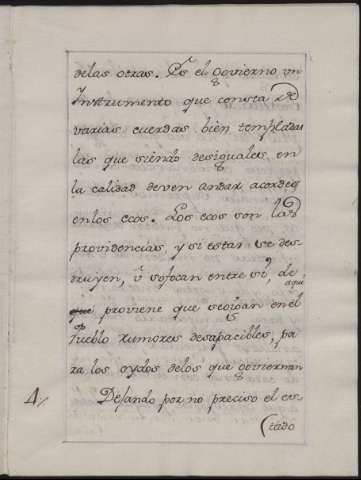 delas otras. Es el Govierno vn
Instrumento que consta de
varias cuerdas bien templadas
las que siendo desiguales, en
la calidad deven andar acordes
en los ecos. Los ecos son las
providencias, y si estas se des-
truyen, ù sofocan entre si, de
aqui
proviene que seoigan en el
Pueblo rumores desapacibles, pa
ra los oydos delos que goviernan
4/. Dejando por no preciso el es
(tado